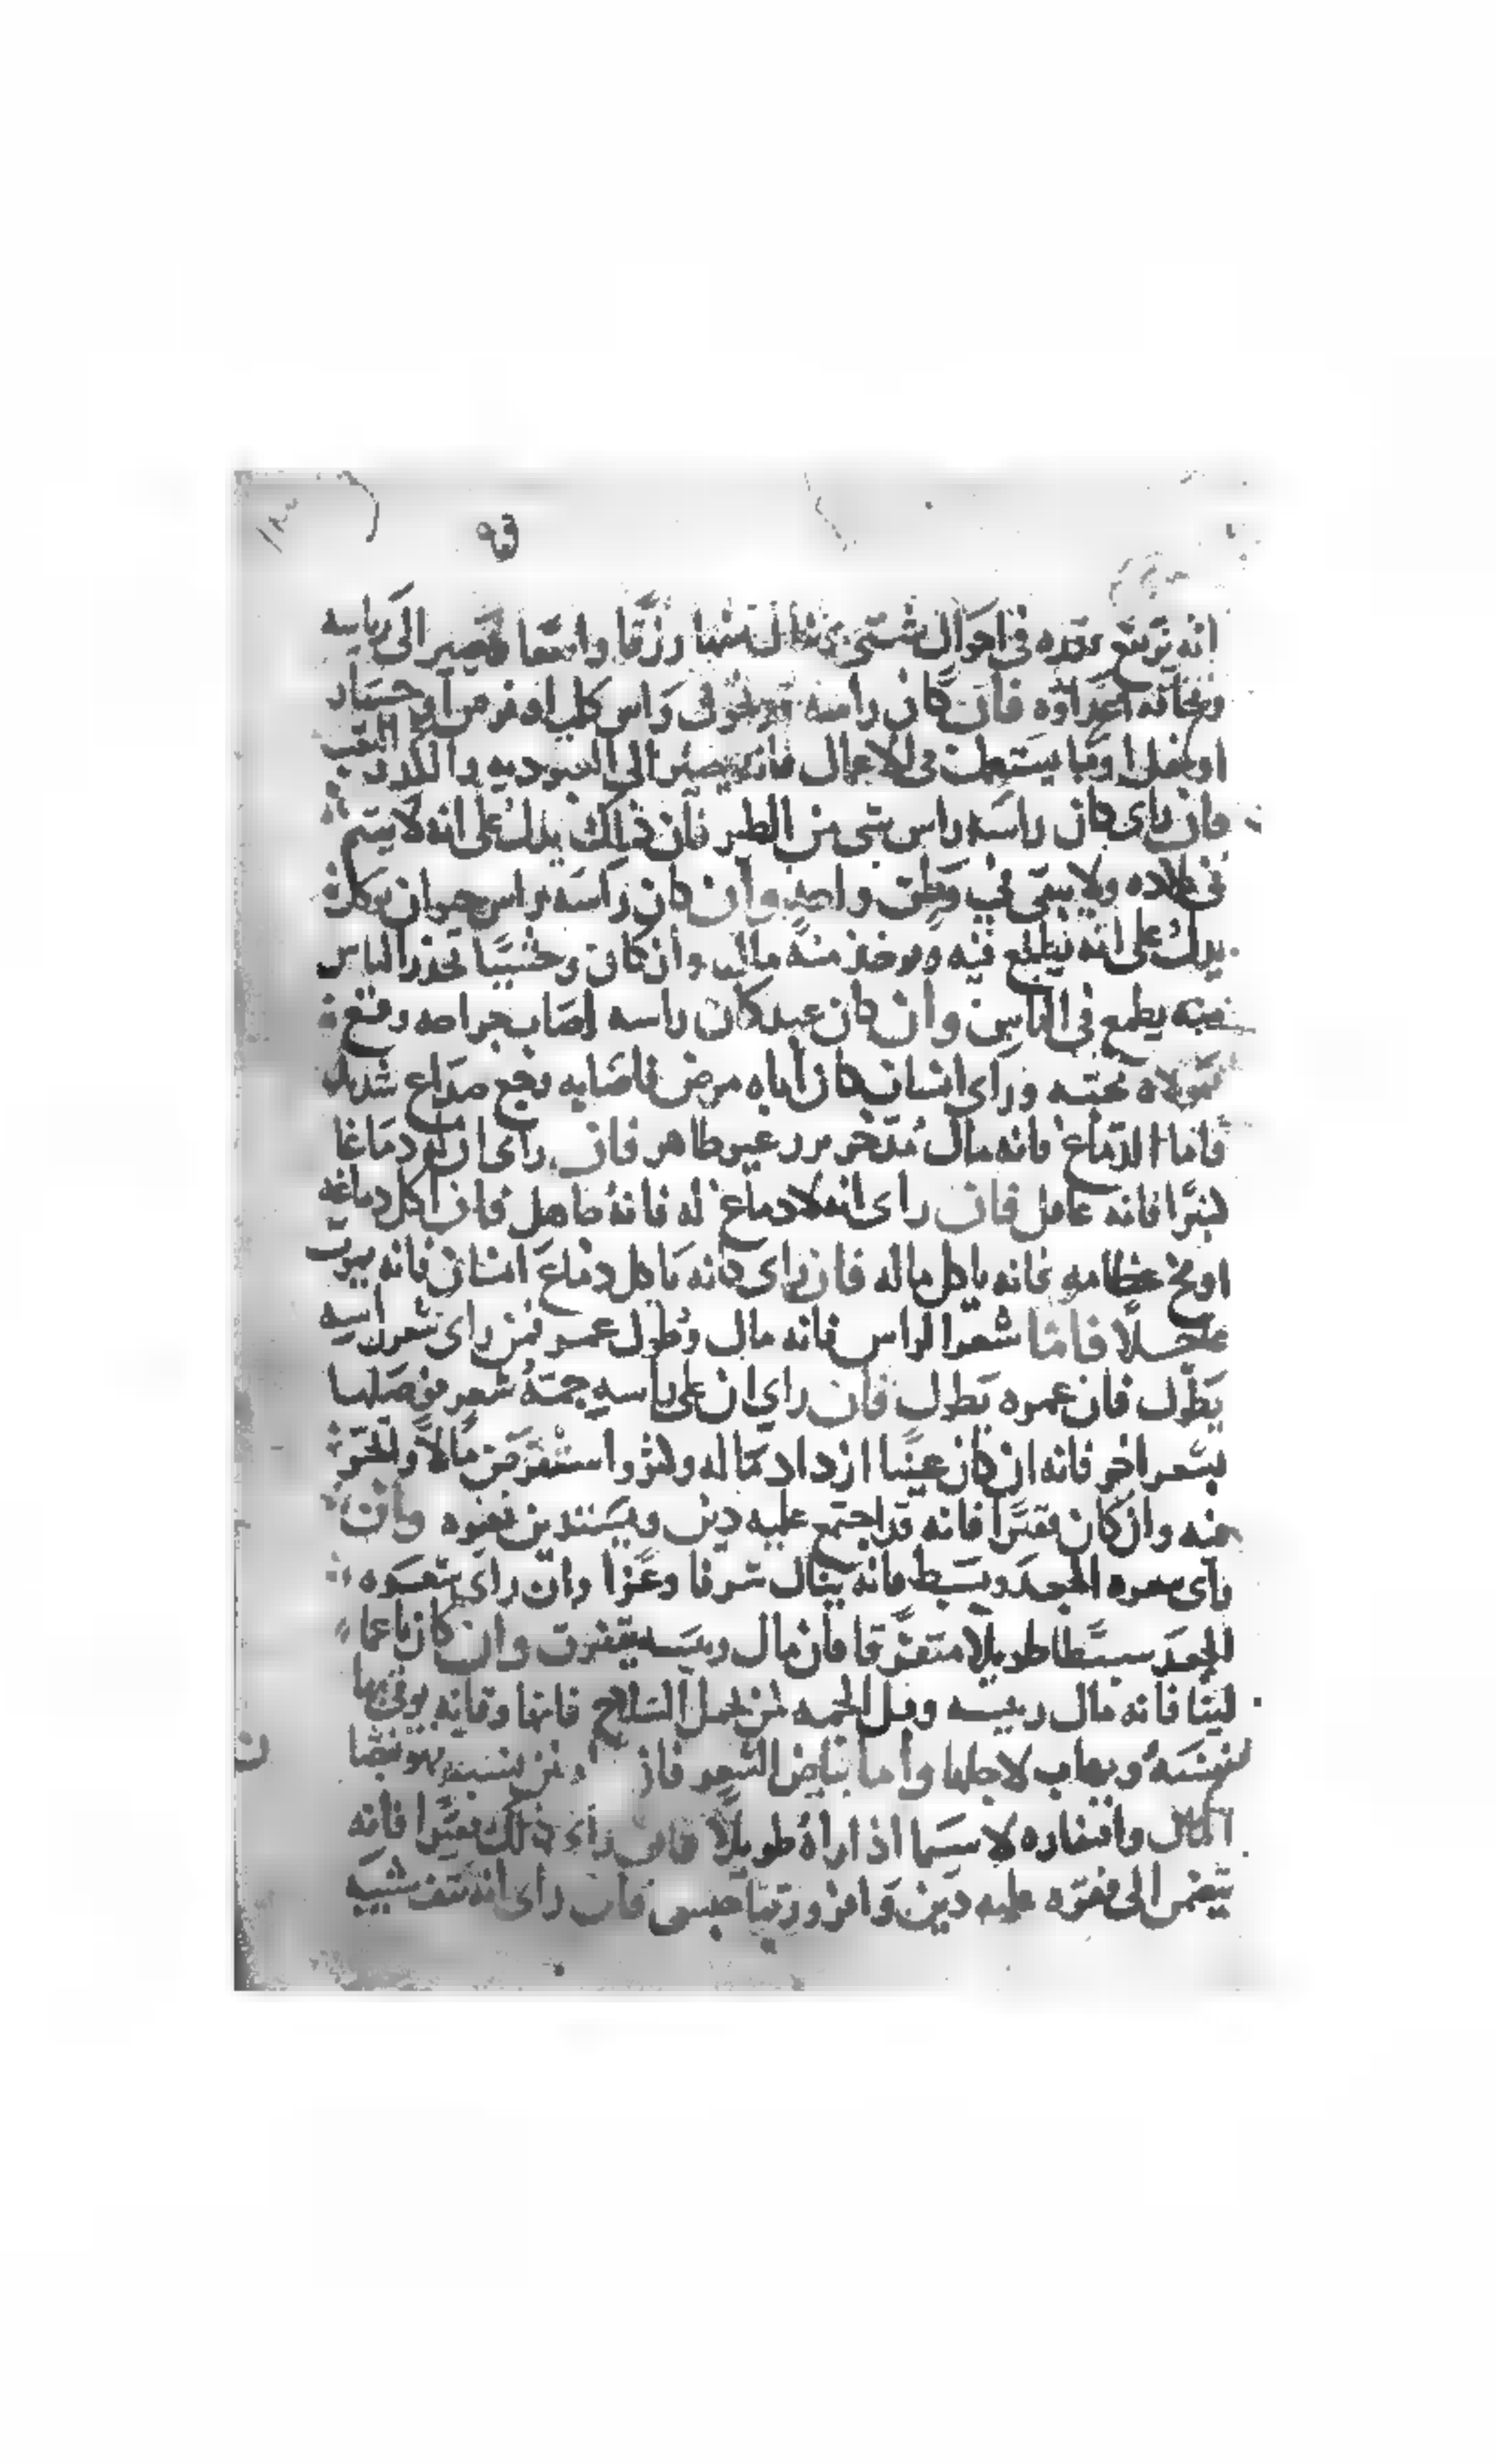 انه يرتفع قدره في احوال شتى وينال منها رزقا واسعا ويصير الى رياسه
وتخافه اعداؤه فان كان راسه قد تحول راس كلب او فرس او حمار
او بغل او ما يستعمل في الاعمال فانه يصير الى العبوديه والكد والتعب
فان راى كان راسه راس شي من الطير فان ذلك يدل على انه لا يتم
في بلاده ولا يبقى في وطن واحد وان كان راسه راس حيوان يوكل
يدل على انه يطمع فيه ويوخذ منه مال وان كان وحشيا تحذر الناس
منه يطمع في الناس وان كان عبد كان راسه اصاب جراحه وقع
بمولاه محبته وراى انسان كان اباه مرض فاصابه وجع صداع شديد
فاما الدماغ فانه مال مدخر غير طاهر فان راى ان له دماغا
كبيرا فانه عاقل فان راى انه لا دماغ له فانه جاهل فان اكل دماغه
او مخ عظامه فانه ياكل ماله فان راى كانه ياكل دماغ انسان فانه يموت
عاجلا فاما شعر الراس فانه مال وطول عمر فمن راى شعر راسه
يطول فان عمره يطول فان راى ان على راسه جمة شعر فوصلها
بشعر اخر فانه ان كان غنيا ازداد ماله وكثر واستقرض مالا واتجر
منه وان كان فقيرا فانه قد اجتمع عليه دين ويستدين غيره وان
راى شعره الجعد وبسط فانه ينال شرفا وعزا وان راى شعره
الجعد سبطا طويلا متفرقا فان مال رييسه يتفرق وان كان ناعما
لينا فانه مال رييسه وقيل الجمه لمن يحمل السلاح فانها وقايه يوقي بها
نفسه ويهاب لاجلها واما بياض الشعر فان
المال وافتقاره لا سيما اذا راه طويلا فان راى ذلك فقيرا فانه
الى فقره عليه دين وافر وربما حبس فان راى انه نتف شيبه